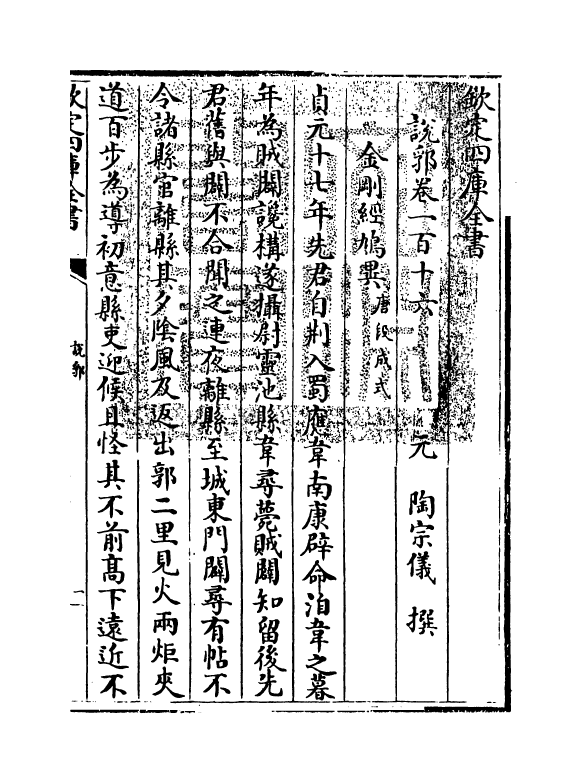 欽定四庫全書
說郛卷一百十六 元 陶宗儀 撰
金剛經鳩異 唐段成式
貞元十七年先君自荆入蜀應韋南康辟命洎韋之暮
年為賊闢讒構遂攝尉靈池縣韋尋薨賊闢知留後先
君舊與闢不合聞之連夜離縣至城東門闢尋有帖不
令諸縣官離縣其夕陰風及返出郭二里見火兩炬夾
道百步為導初意縣吏迎候且怪其不前高下遠近不
欽定四庫全書
說郛
一